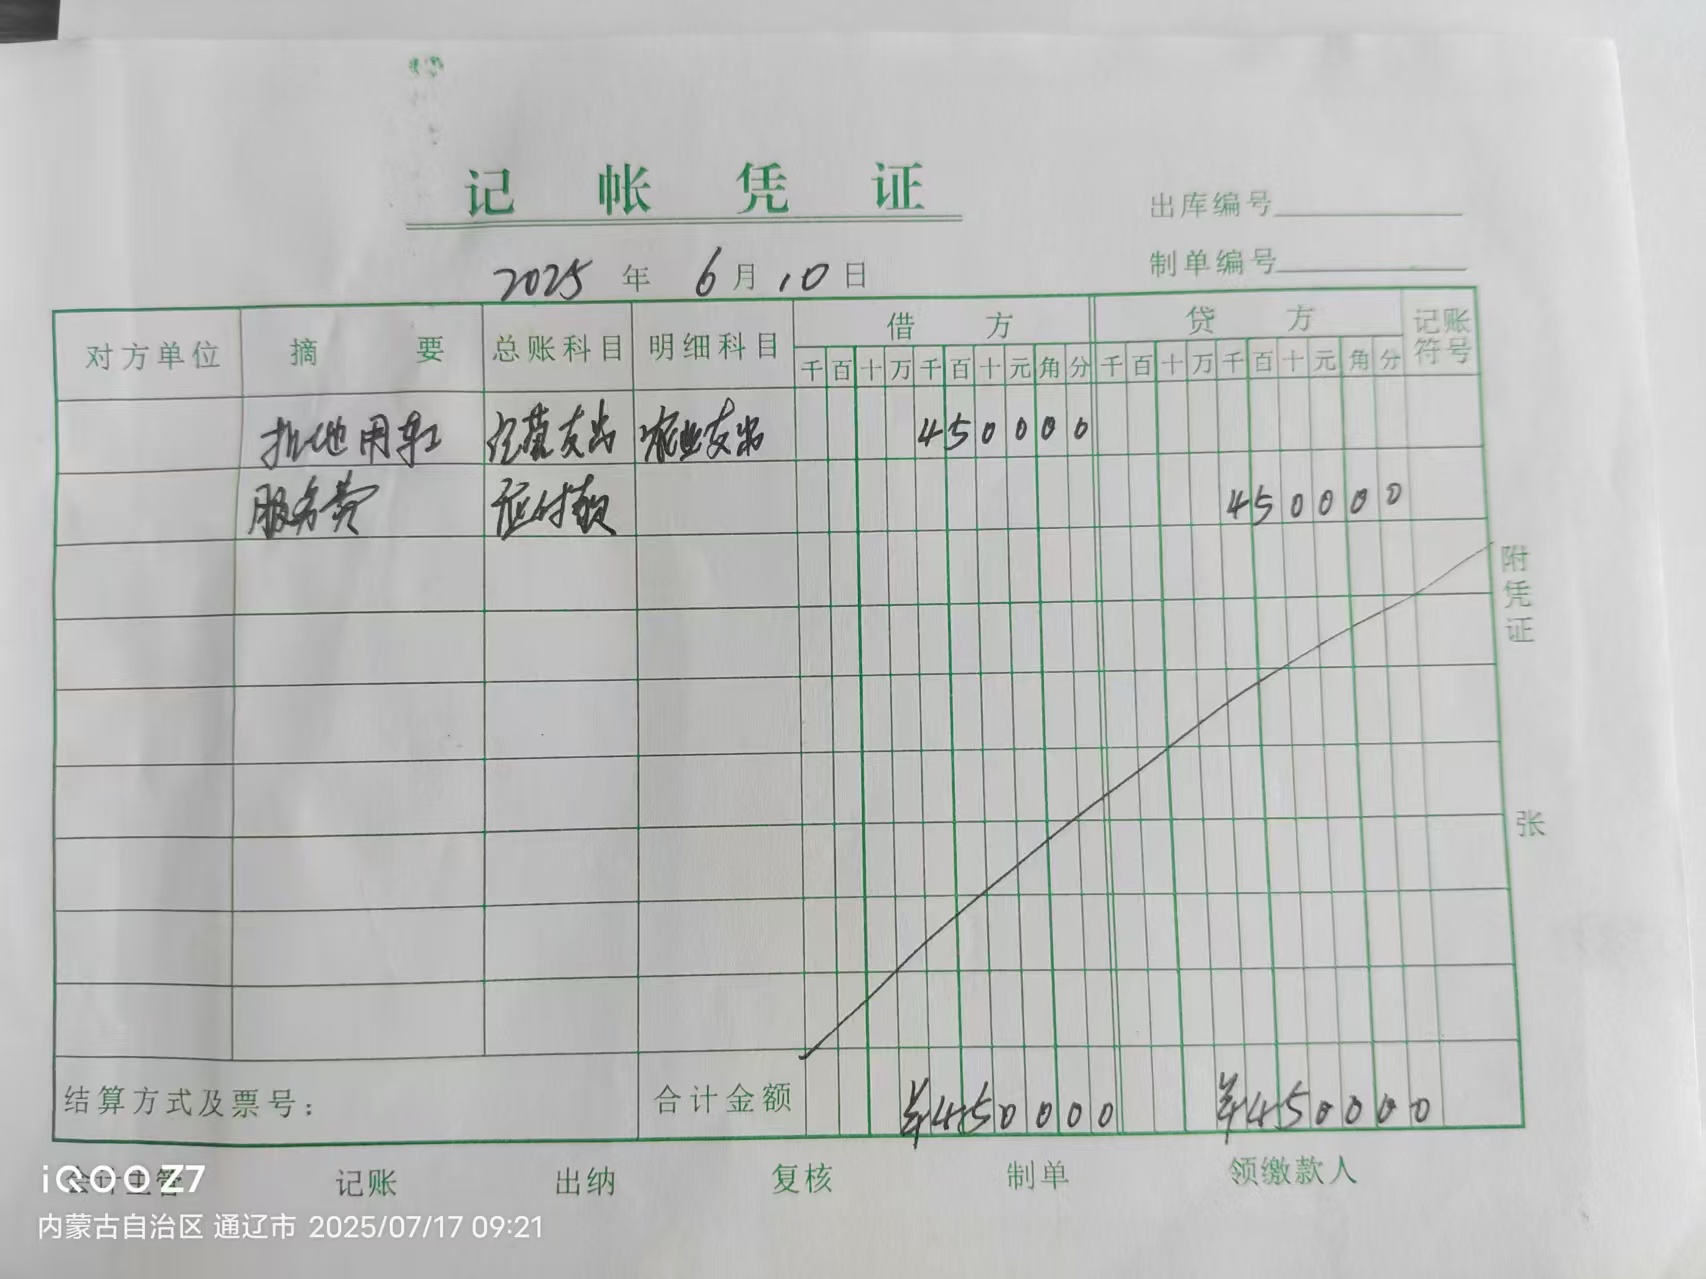 记 帐 凭 证
出库编号
制单编号
2025 年 6 月 10 日
对方单位 摘 要 总账科目 明细科目 借 方 贷 方 记账符号
千 百 十 万 千 百 十 元 角 分 千 百 十 万 千 百 十 元 角 分
用 支出 支出 4 5 0 0 0 0
服务费 应付款 4 5 0 0 0 0
附凭证
张
结算方式及票号： 合计金额 ¥ 4 5 0 0 0 0 ¥ 4 5 0 0 0 0
会计主管 记账 出纳 复核 制单 领缴款人
iQOO Z7
内蒙古自治区 通辽市 2025/07/17 09:21